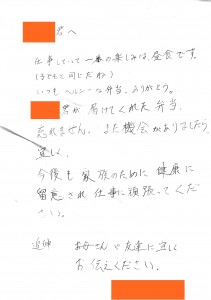 君へ
仕事していて一番の楽しみは、昼食です。
(子どもと同じだね)
いつもヘルシーな弁当、ありがとう。
君が届けてくれた弁当、
忘れません。また機会がありましたら
宜しく。
今後も家族のために健康に
留意され仕事に頑張ってくだ
さい。
追伸 お母さんや友達に宜しく
お伝えください。